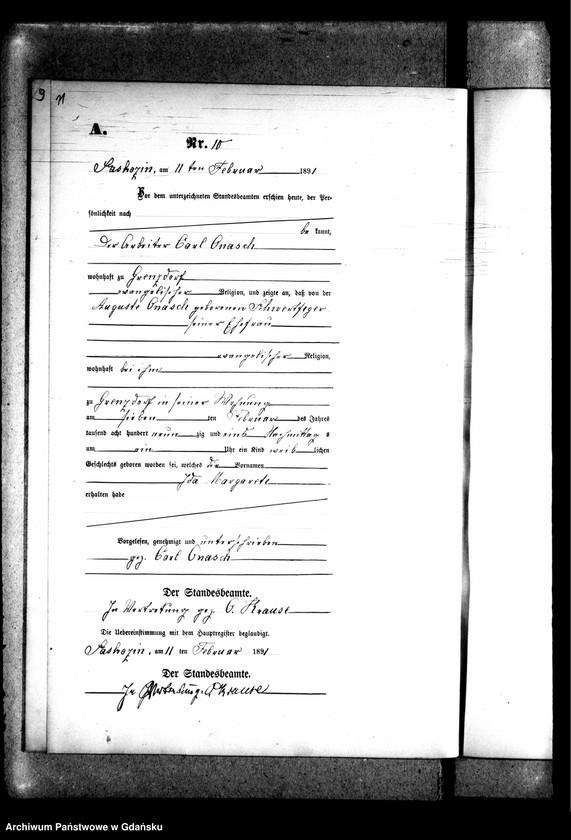 9
11
A.
Nr. 10
Saskozin, am 11 ten Februar 1891
Vor dem unterzeichneten Standesbeamten erschien heute, der Per-
sönlichkeit nach
be kannt,
Der Arbeiter Carl Onasch
wohnhaft zu Grenzdorf
evangelischer Religion, und zeigte an, daß von der
Auguste Onasch geborenen Schwertfeger
seiner Ehefrau
evangelischer Religion,
wohnhaft bei ihm
zu Grenzdorf in seiner Wohnung
am sieben ten Februar des Jahres
tausend acht hundert neun zig und eins Nachmittag s
um ein Uhr ein Kind weib lichen
Geschlechts geboren worden sei, welches die Vornamen
Ida Margarete
erhalten habe
Vorgelesen, genehmigt und unterschrieben
gez. Carl Onasch
Der Standesbeamte.
In Vertretung gez. O. Krause
Die Uebereinstimmung mit dem Hauptregister beglaubigt.
Saskozin, am 11 ten Februar 1891
Der Standesbeamte.
In Vertretung. O Krause
Archiwum Państwowe w Gdańsku